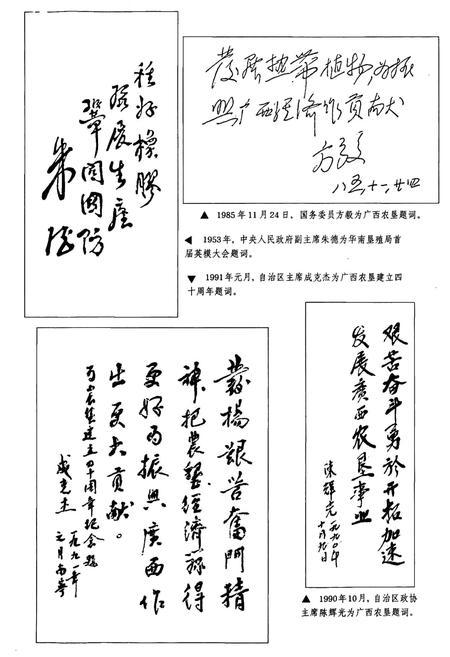 种好橡胶
发展生产
鞏固國防
朱德
發展热带植物,为振
興广西经济作贡献
方毅
八五十一、廿四
▲ 1985年11月24日,国务委员方毅为广西农垦题词。
◀ 1953年,中央人民政府副主席朱德为华南垦殖局首
届英模大会题词。
▼ 1991年元月,自治区主席成克杰为广西农垦建立四
十周年题词。
發揚艱苦奮鬥精
神,把農墾經濟辦得
更好为振興廣西作
出更大貢獻。
建立四十周年纪念题
成克杰 一九九一年
元月南寧
艰苦奋斗勇於开拓加速
发展廣西农垦事业
陈輝光 一九九〇年
十月九日
▲ 1990年10月,自治区政协
主席陈辉光为广西农垦题词。